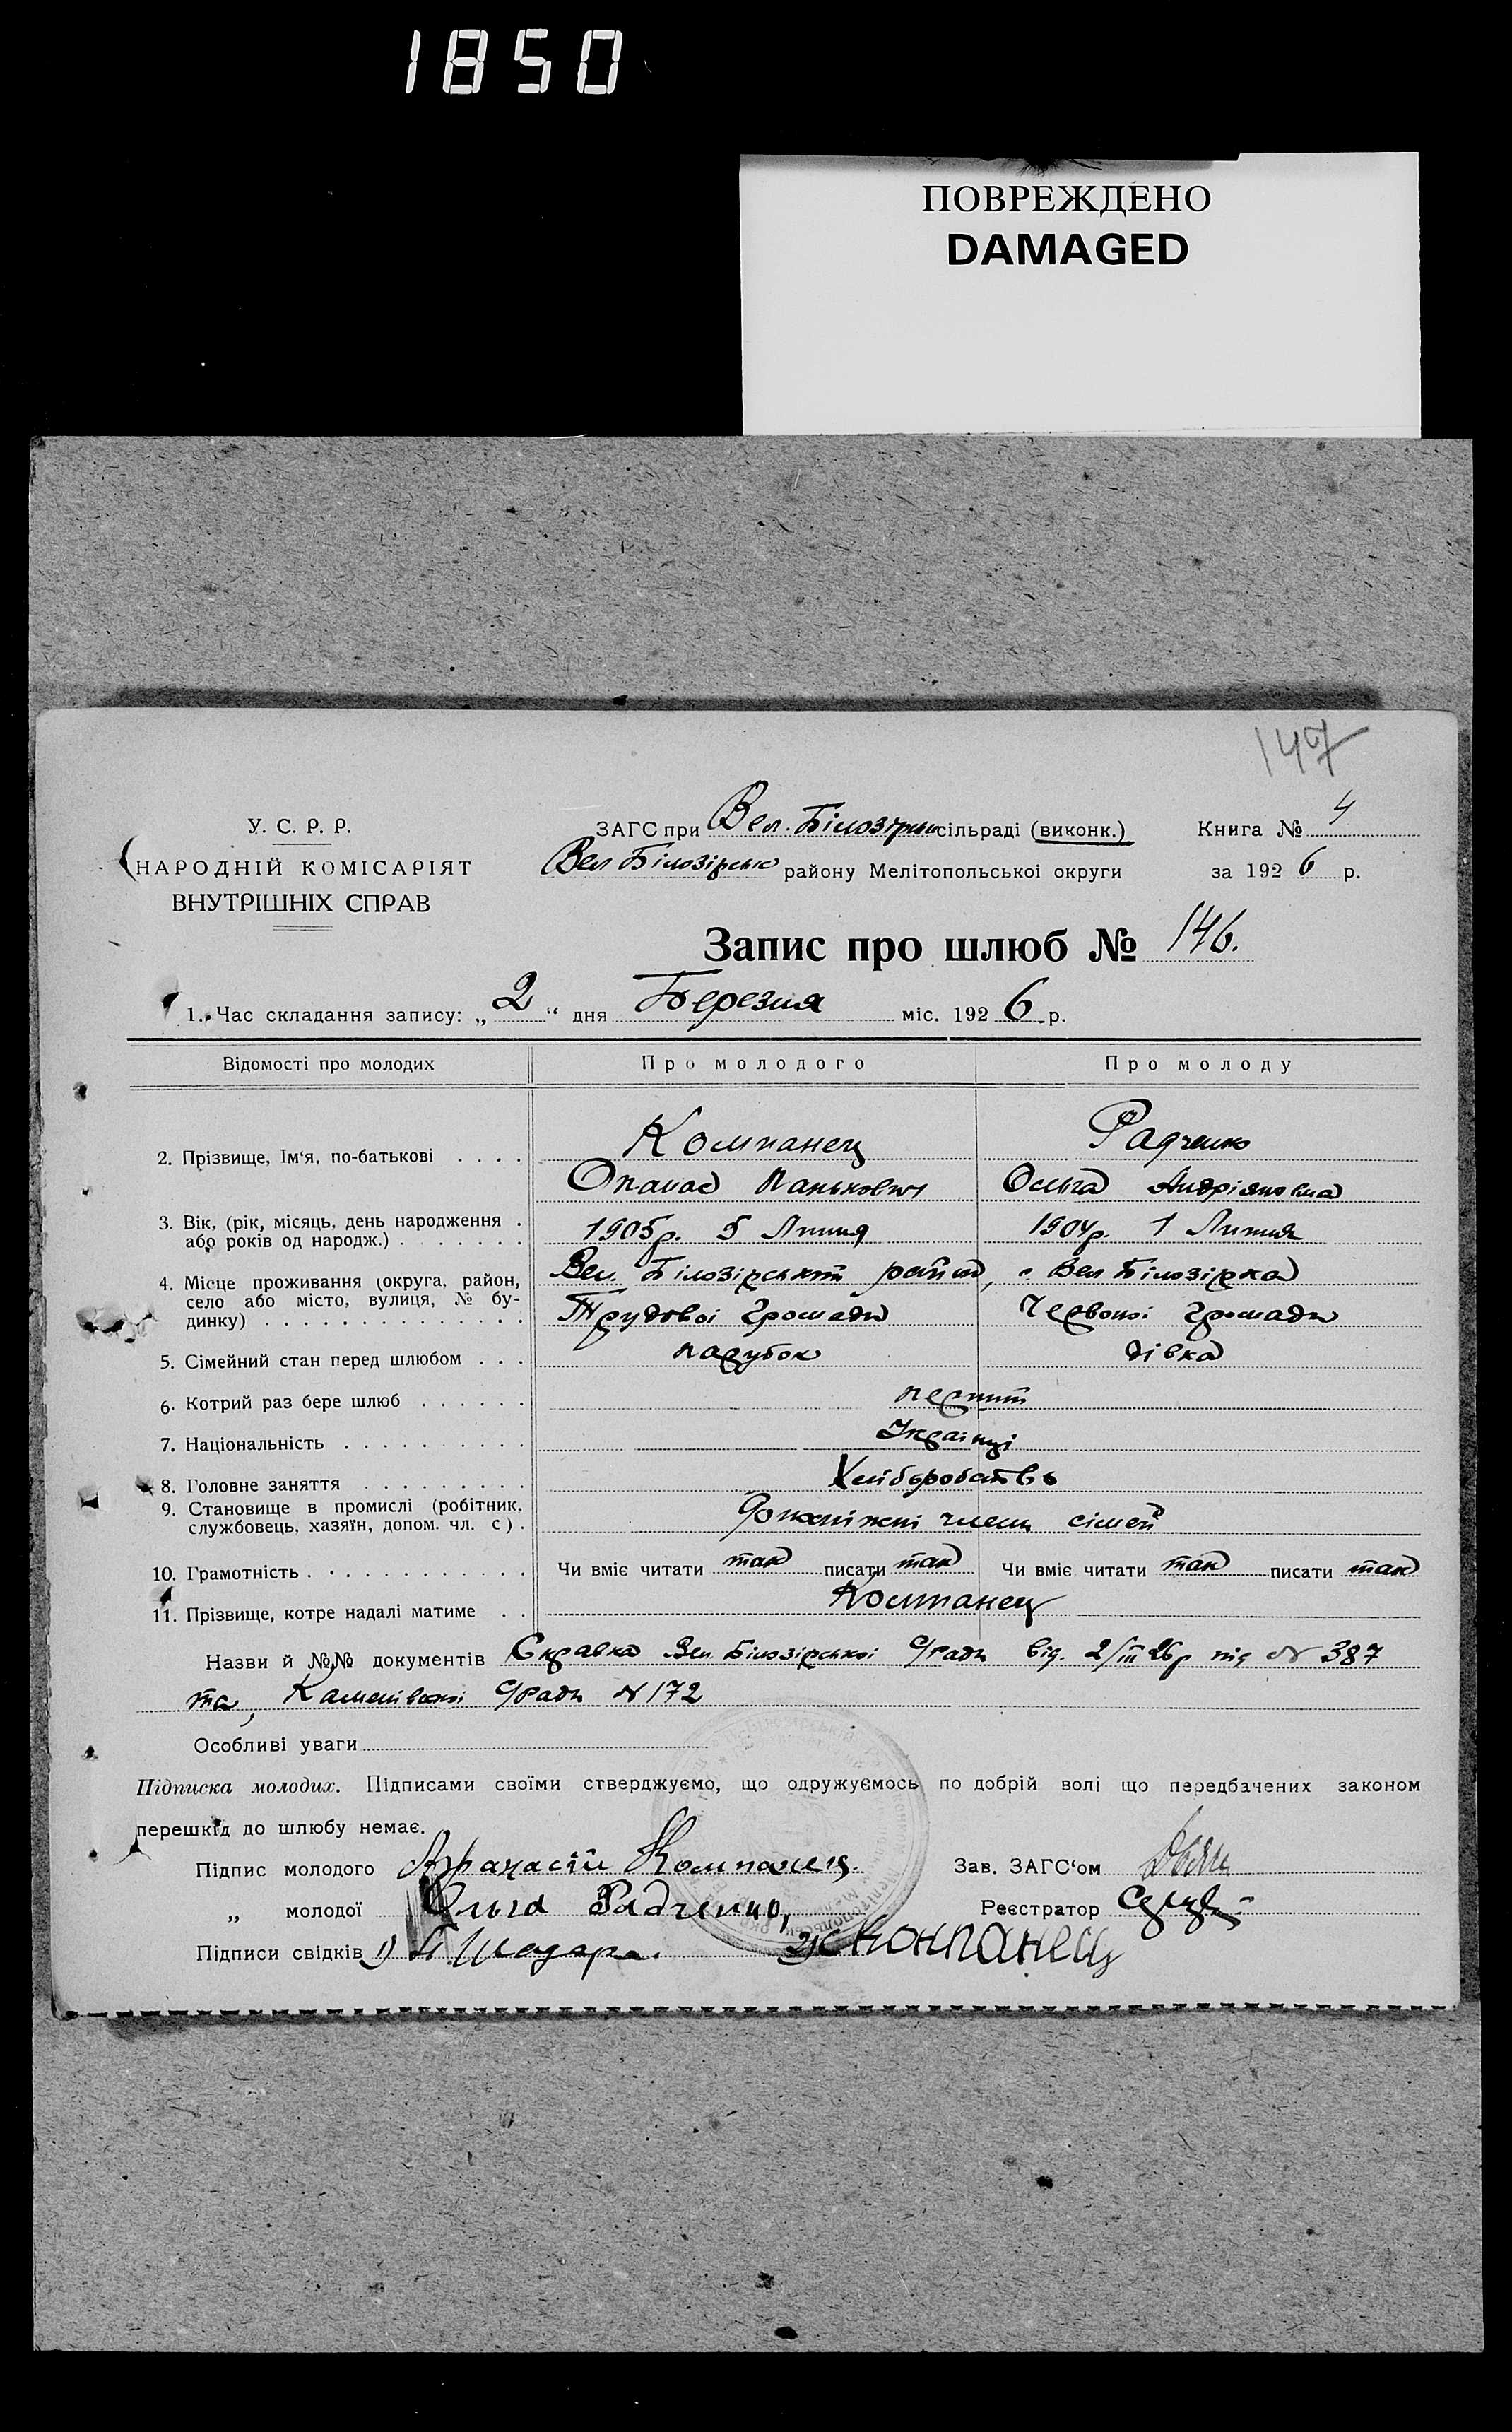 1850
ПОВРЕЖДЕНО
DAMAGED
147
У. С. Р. Р.
НАРОДНІЙ КОМІСАРІЯТ
ВНУТРІШНІХ СПРАВ
ЗАГС при Вел. Білозірськ сільраді (виконк.)
Вел Білозірськ району Мелітопольської округи
Книга № 4
за 1926 р.
Запис про шлюб № 146.
1. Час складання запису: „2“ дня Березня міс. 1926 р.
Відомості про молодих Про молодого Про молоду
2. Прізвище, Ім'я, по-батькові . . . . Компанец Радченко
Опанас Панькович Ольга Андріяновна
3. Вік, (рік, місяць, день народження .
або років од народж.) . . . . . . . 1905р. 5 Липня 1904р. 1 Липня
4. Місце проживання (округа, район, Вел. Білозірський район, с. Вел Білозірка
село або місто, вулиця, № бу-
динку) . . . . . . . . . . . . . . Трудової громади Червоної громади
5. Сімейний стан перед шлюбом . . . парубок дівка
6. Котрий раз бере шлюб . . . . . . перший
7. Національність . . . . . . . . . . Українці
8. Головне заняття . . . . . . . . . Хліборобство
9. Становище в промислі (робітник,
службовець, хазяїн, допом. чл. с) . члени сімей
10. Грамотність . . . . . . . . . . . . Чи вміє читати так писати так Чи вміє читати так писати так
11. Прізвище, котре надалі матиме . . Компанец
Назви й №№ документів Справка Вел. Білозірської С/ради від. 2/III 26р під № 387
та, С/ради № 172
Особливі уваги
Підписка молодих. Підписами своїми стверджуємо, що одружуємось по добрій волі що передбачених законом
перешкід до шлюбу немає.
Підпис молодого Афанасій Компанец.
Зав. ЗАГС'ом
„ молодої Ольга Радченко,
Реєстратор
Підписи свідків 1) 2) Конпанец